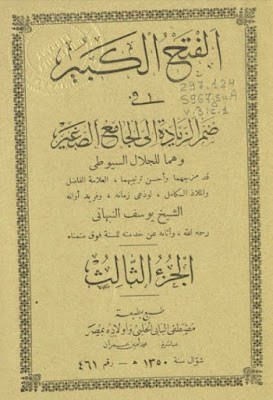 الفتح الكبير
في
ضم الزيادة إلى الجامع الصغير
297.124
S967suA
v.3 c.1
وهما للجلال السيوطي
قد مزجهما وأحسن ترتيبهما، العلامة الفاضل
والملاذ الكامل، لوذعي زمانه، وفريد أوانه
الشيخ يوسف النبهاني
رحمه الله، وأثابه عن خدمته للسنة فوق متمناه
الجزء الثالث
طبع بمطبعة
مصطفى البابي الحلبي وأولاده بمصر
بمباشرة محمد أمين عمران
شوال سنة ١٣٥٠ هـ - رقم ٤٦١